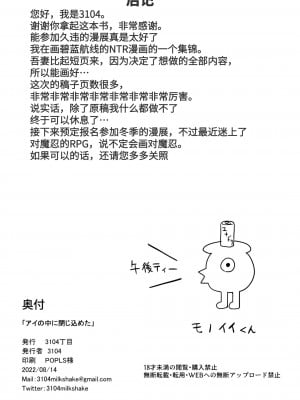 后记
您好，我是3104。
谢谢你拿起这本书，非常感谢。
能参加久违的漫展真是太好了
我在画碧蓝航线的NTR漫画的一个集锦。
吾妻比起短页来，因为决定了想做的全部内容，
所以能画好…
这次的稿子页数很多，
非常非常非常非常非常非常非常厉害。
说实话，除了原稿我什么都做不了
终于可以休息了…
接下来预定报名参加冬季的漫展，不过最近迷上了
对魔忍的RPG，说不定会画对魔忍。
如果可以的话，还请您多多关照
午後ティー
モノイイくん
奥付
「アイの中に閉じ込めた」
発行 3104丁目
発行者 3104
印刷 POPLS様
2022/08/14
Mail: 3104milkshake@gmail.com
Twitter: 3104milkshake
18才未満の閲覧・購入禁止
無断転載・転用・WEBへの無断アップロード禁止